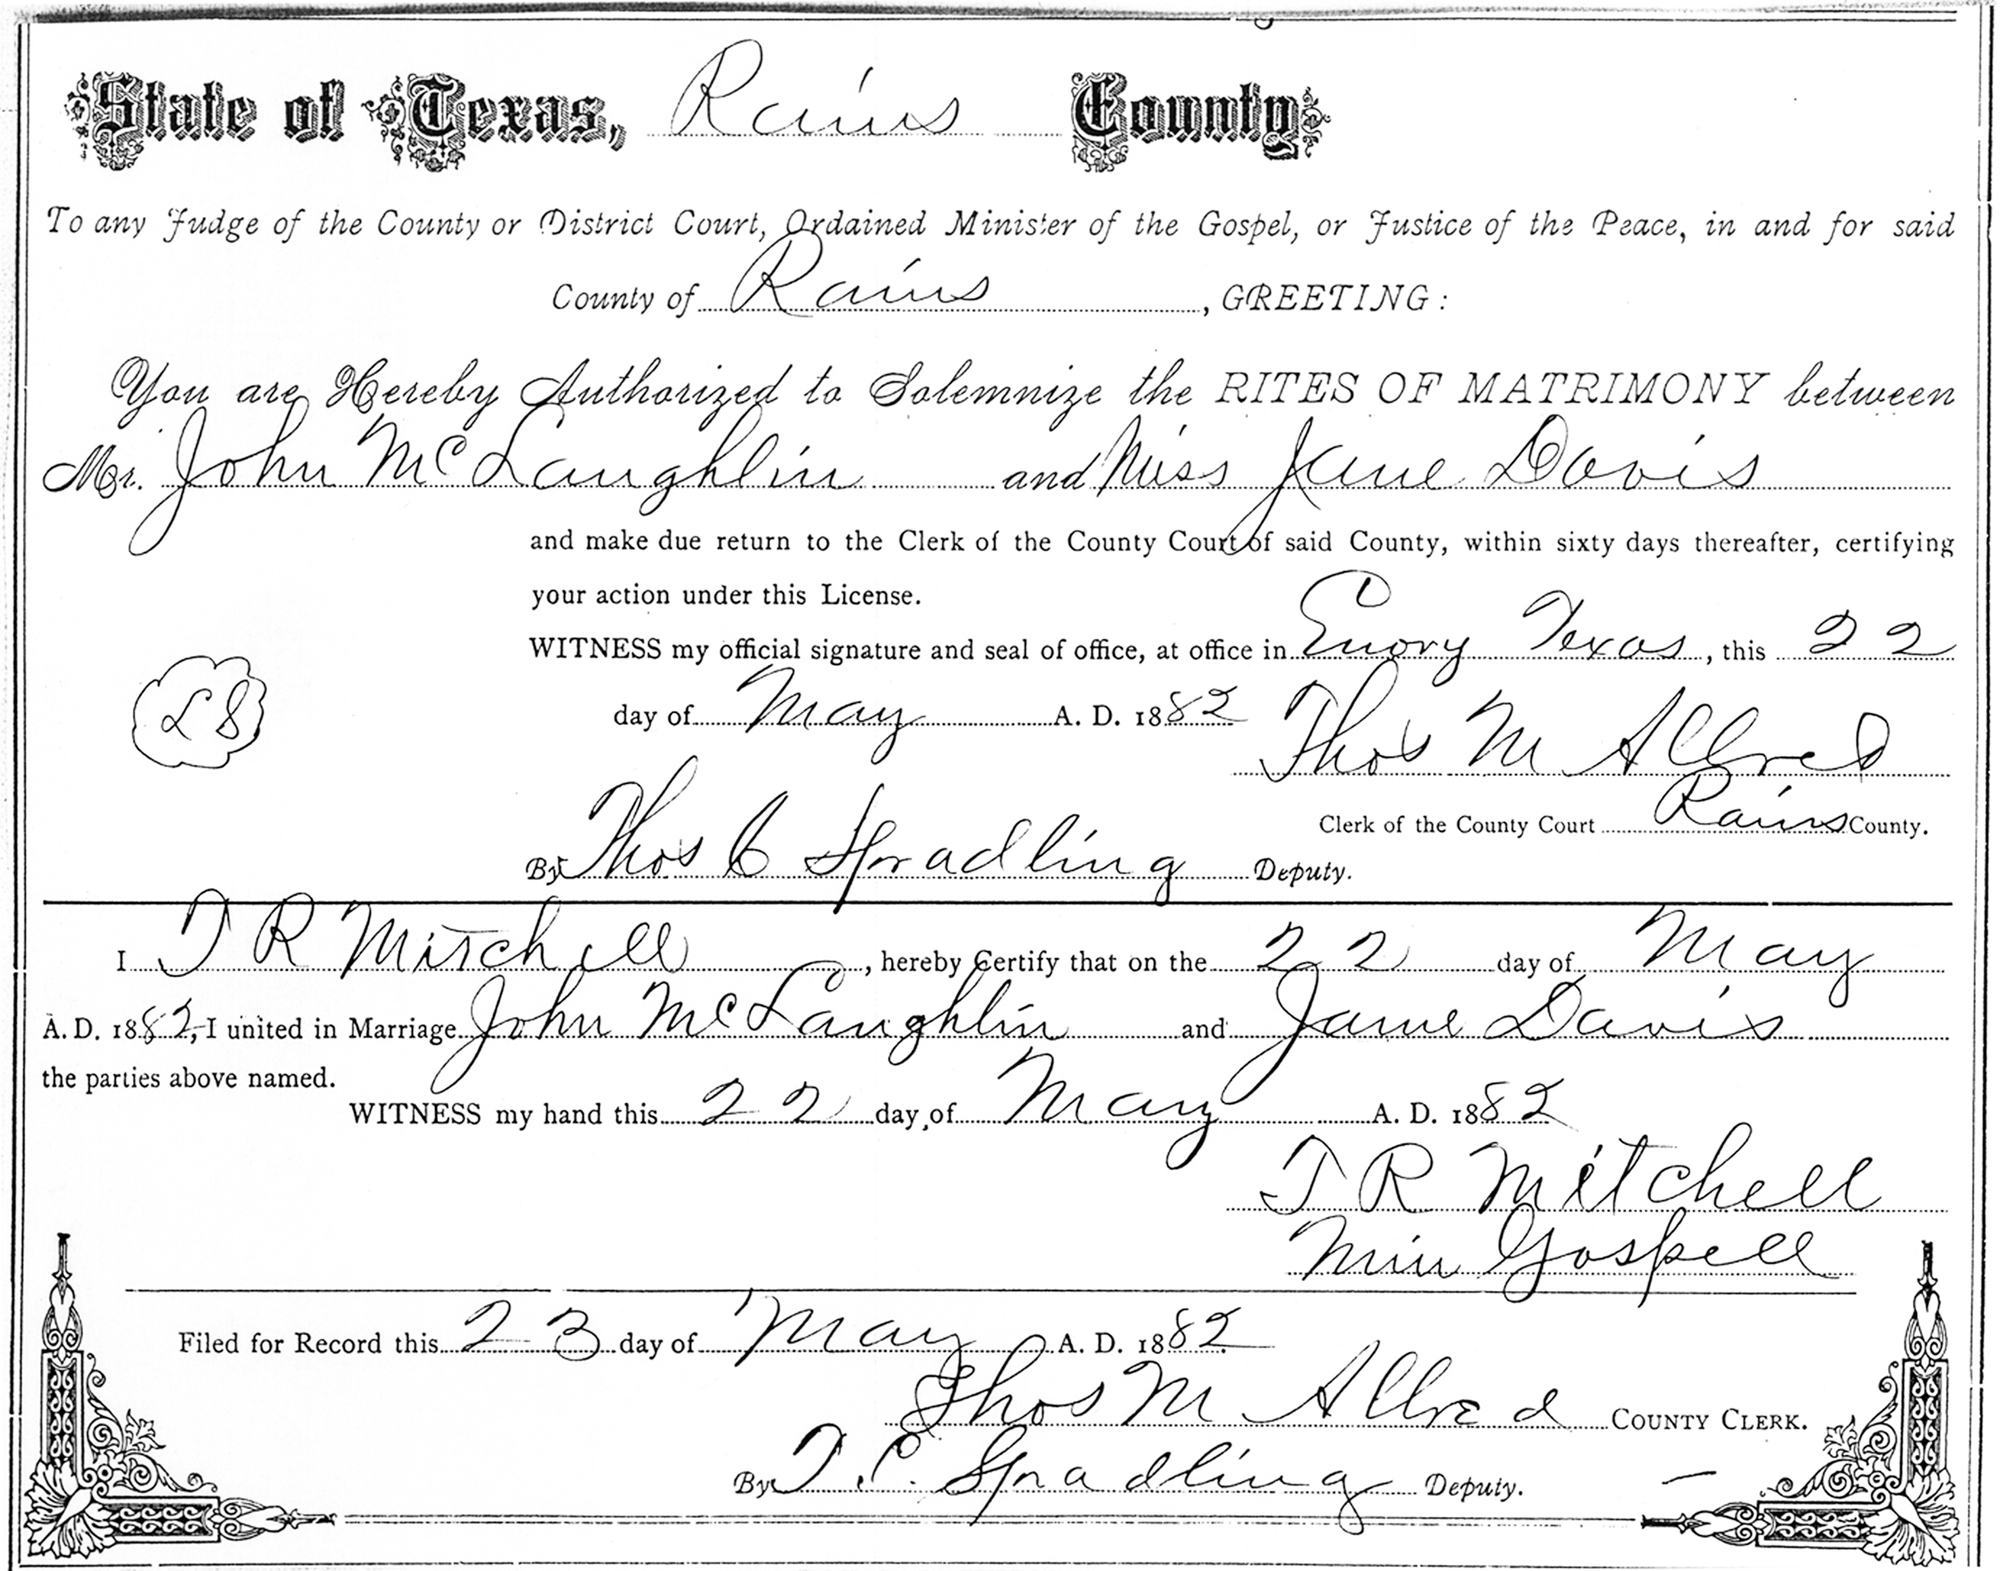 State of Texas, Rains County
To any Judge of the County or District Court, Ordained Minister of the Gospel, or Justice of the Peace, in and for said
County of Rains, GREETING:
You are Hereby Authorized to Solemnize the RITES OF MATRIMONY between
Mr. John McLaughlin and Miss Jane Davis
and make due return to the Clerk of the County Court of said County, within sixty days thereafter, certifying
your action under this License.
WITNESS my official signature and seal of office, at office in Emory Texas, this 22
LS
day of May A. D. 1882
Thos M Allred
Clerk of the County Court Rains County.
By Thos C Spradling Deputy.
I T R Mitchell, hereby Certify that on the 22 day of May
A. D. 1882, I united in Marriage John McLaughlin and Jane Davis
the parties above named.
WITNESS my hand this 22 day of May A. D. 1882
T R Mitchell
Min Gospell
Filed for Record this 23 day of May A. D. 1882
Thos M Allred COUNTY CLERK.
By T. C. Spradling Deputy.